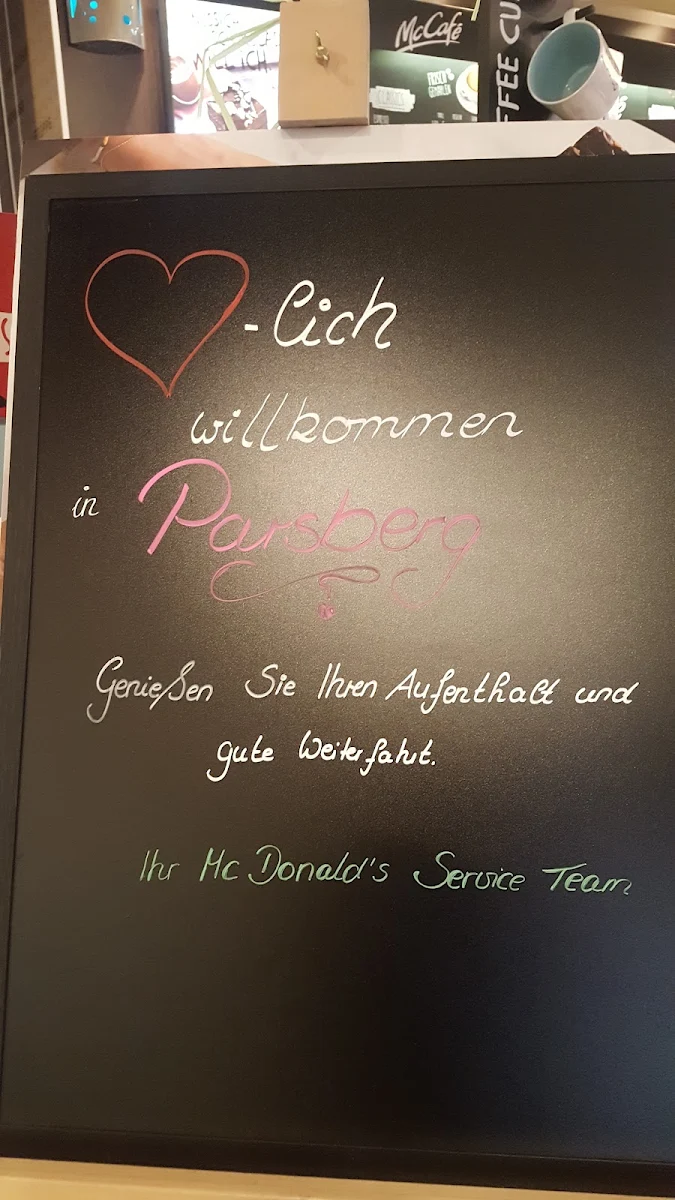 McCafé
FRISCH
GEMAHLEN
CLASSICS
FFEE CU
-lich
willkommen
in Parsberg
Genießen Sie Ihren Aufenthalt und
gute Weiterfahrt.
Ihr Mc Donald's Service Team